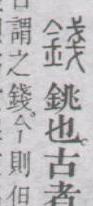 錢 銚也。古者
謂之錢。今則但